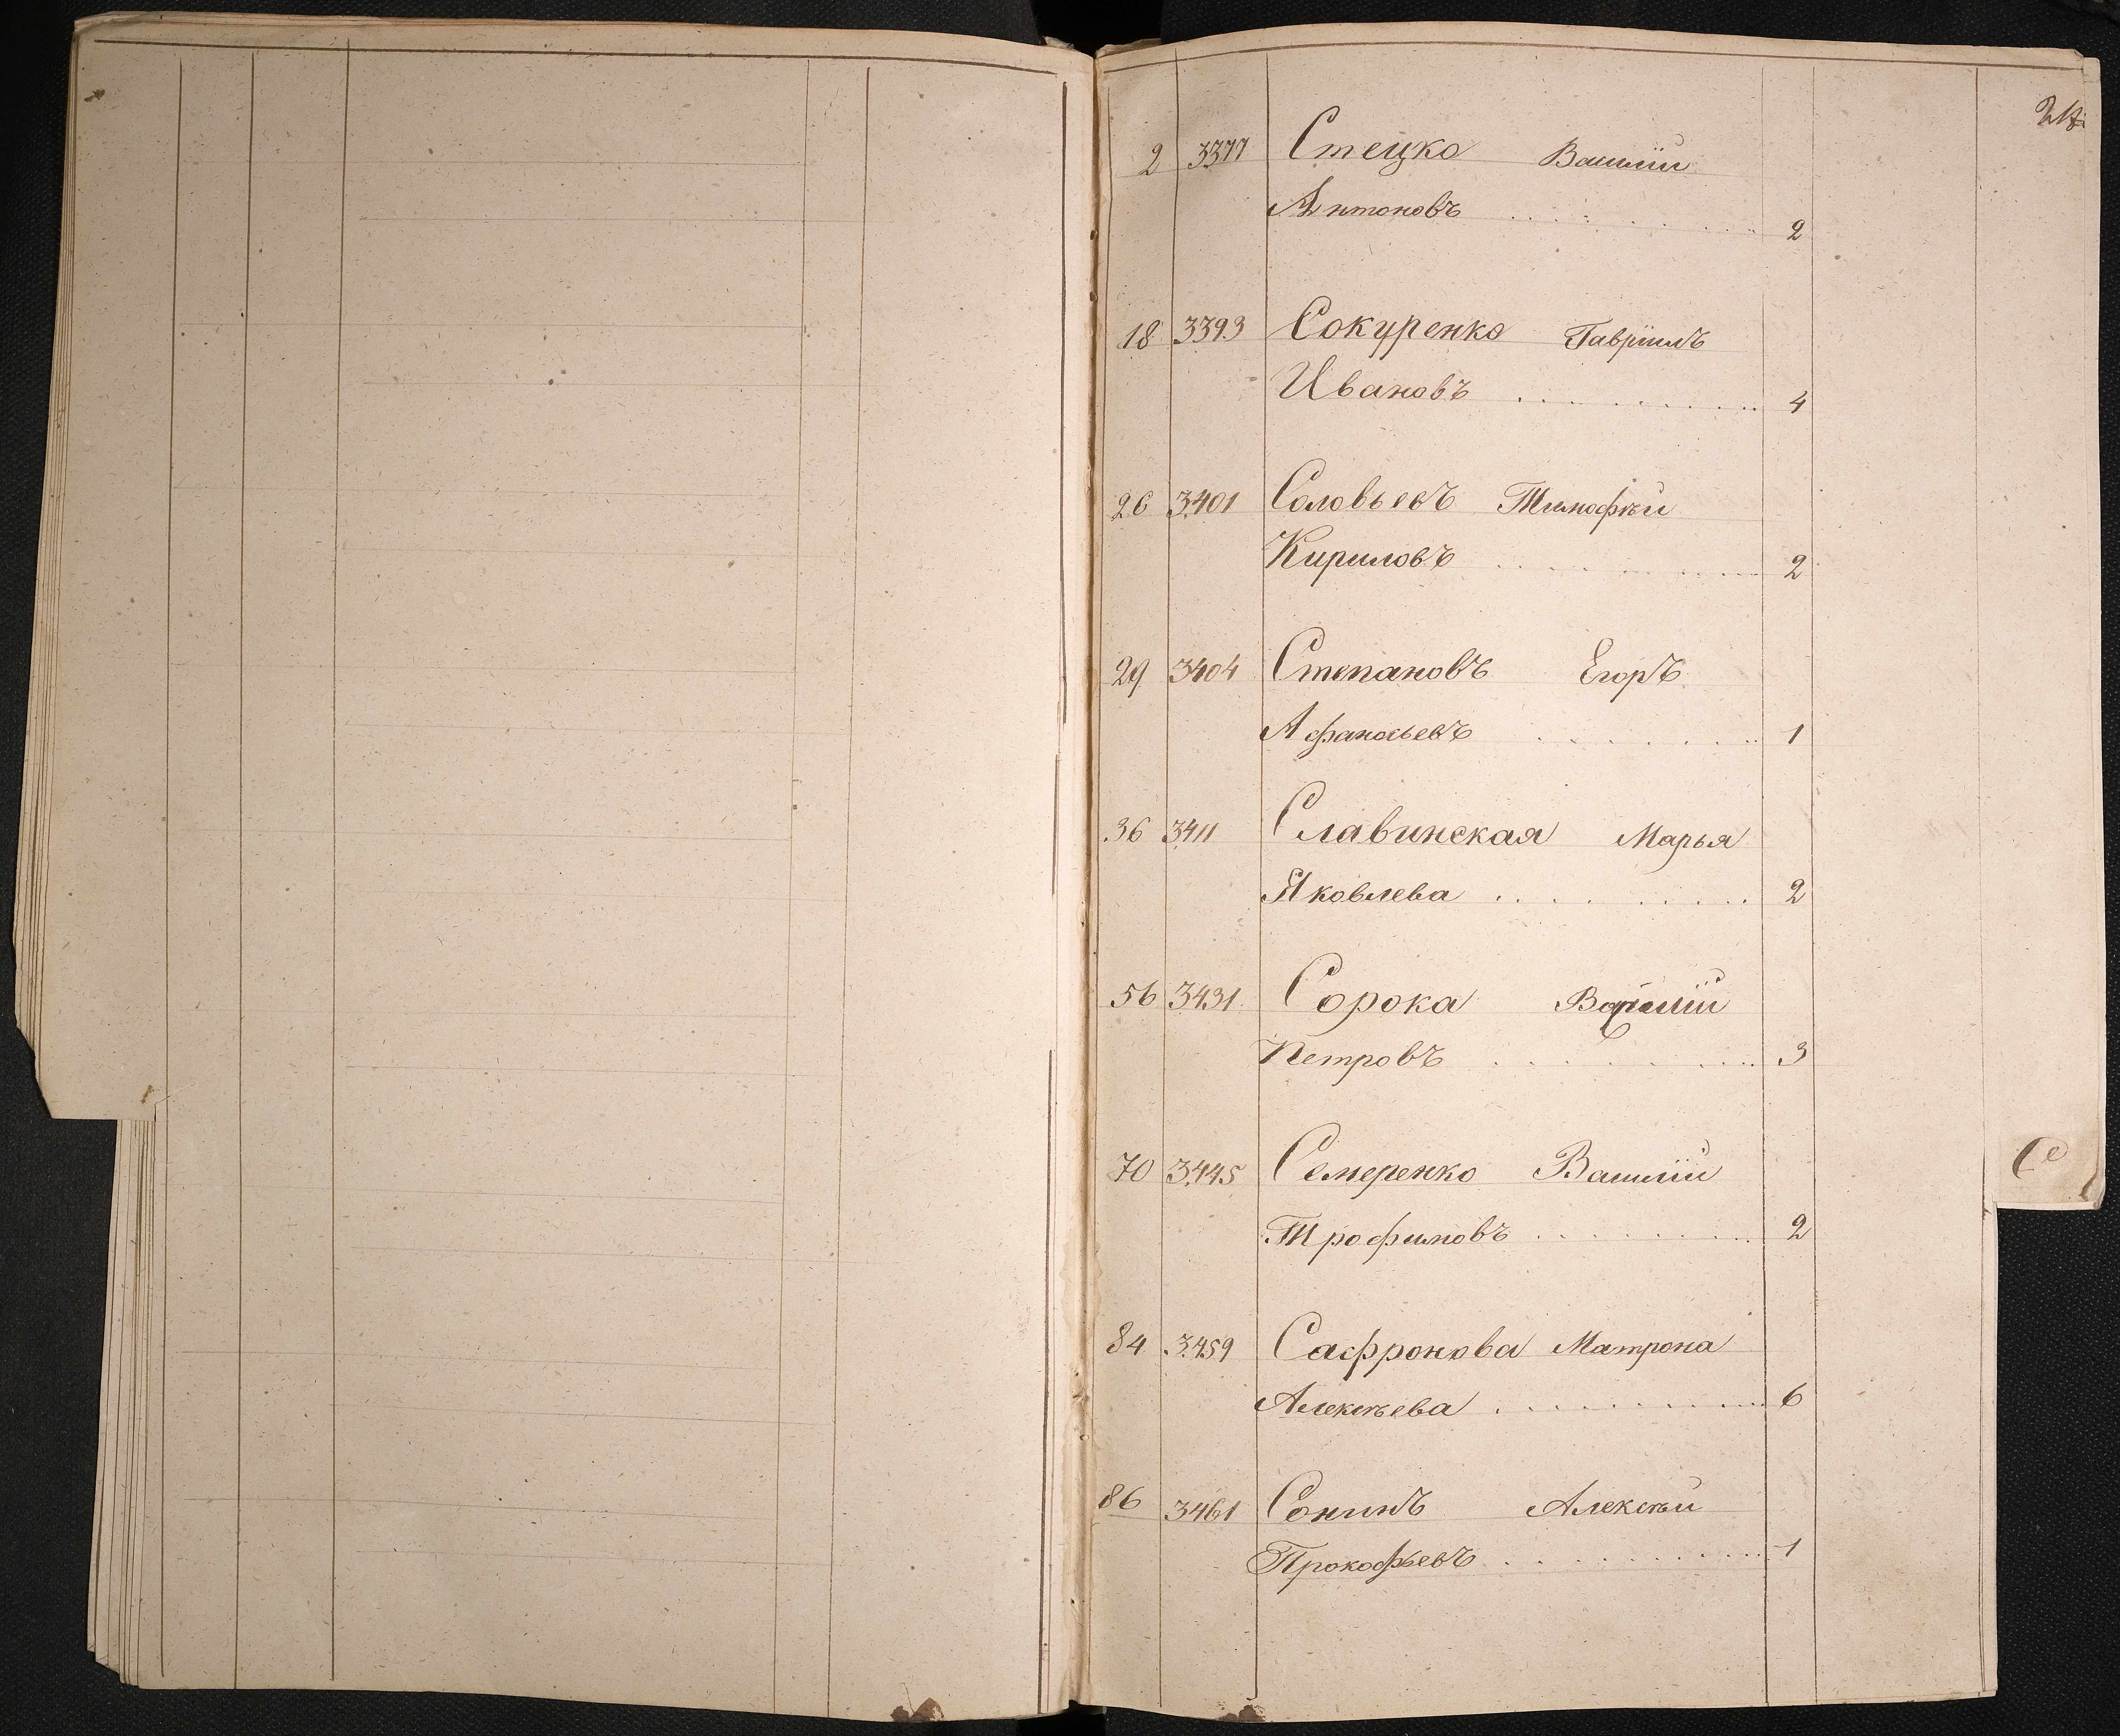 2 3377 Стецко Василій
Антоновъ . . . . . . . . 2
18 3393 Сокуренко Гавріилъ
Ивановъ . . . . . . . . 4
26 3401 Соловьевъ Тимофѣй
Кириловъ . . . . . . . . 2
29 3404 Степановъ Егоръ
Афанасьевъ . . . . . . . 1
36 3411 Славинская Марья
Яковлева . . . . . . . . 2
56 3431 Сорока Василій
Петровъ . . . . . . . . 3
70 3445 Семеренко Василій
Трофимовъ . . . . . . . . 2
С
84 3459 Сафронова Матрона
Алексѣева . . . . . . . . 6
86 3461 Сонинъ Алексѣй
Прокофьевъ . . . . . . . . 1